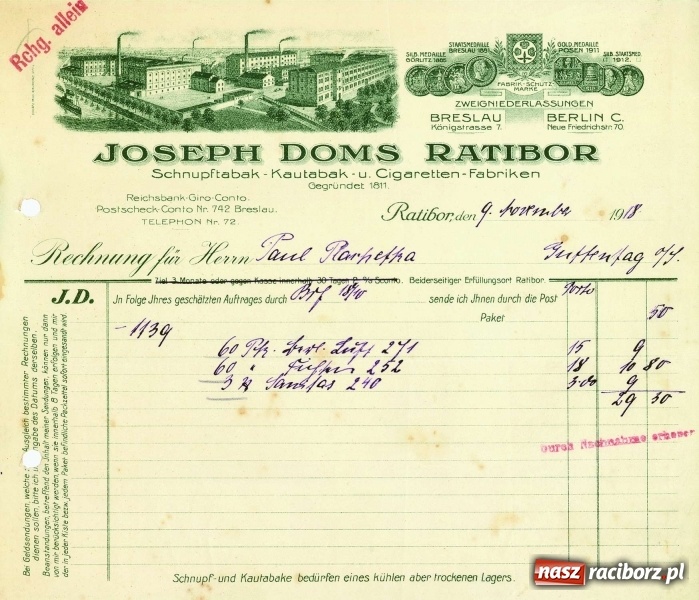 Rchg. allein
STAATSMEDAILLE BRESLAU 1881
GOLD. MEDAILLE POSEN 1911
SILB. MEDAILLE GÖRLITZ 1885
SILB. STAATSMED. 1912.
FABRIK-SCHUTZ-MARKE
ZWEIGNIEDERLASSUNGEN
BRESLAU BERLIN C.
Königstrasse 7. Neue Friedrichstr. 70.
JOSEPH DOMS RATIBOR
Schnupftabak-Kautabak-u. Cigaretten-Fabriken
Gegründet 1811.
Reichsbank-Giro-Conto.
Postscheck-Conto Nr. 742 Breslau.
TELEPHON Nr. 72.
Ratibor, den 9. November 1918
Rechnung für Herrn Paul Guttentag o/S.
Ziel 3 Monate oder gegen Kasse innerhalb 30 Tagen % Sconto. Beiderseitiger Erfüllungsort Ratibor.
J.D.
Jn Folge Jhres geschätzten Auftrages durch Brf 18/10 sende ich Jhnen durch die Post Porto
Paket 50
1139
60 Berl. Luft 271 15 9
60 " 252 18 10 80
3 Sanitas 240 300 9
29 30
Durch Nachnahme
Bei Geldsendungen, welche Ausgleich bestimmter Rechnungen
dienen sollen, bitte ich um Angabe des Datums derselben.
Beanstandungen, betreffend den Jnhalt meiner Sendungen, können nur dann
von mir berücksichtigt werden, wenn sie innerhalb 8 Tagen erfolgen und mir
der in jeder Kiste bezw. jedem Paket befindliche Packzettel sofort eingesandt wird.
Schnupf- und Kautabake bedürfen eines kühlen aber trockenen Lagers.
nasz raciborz.pl